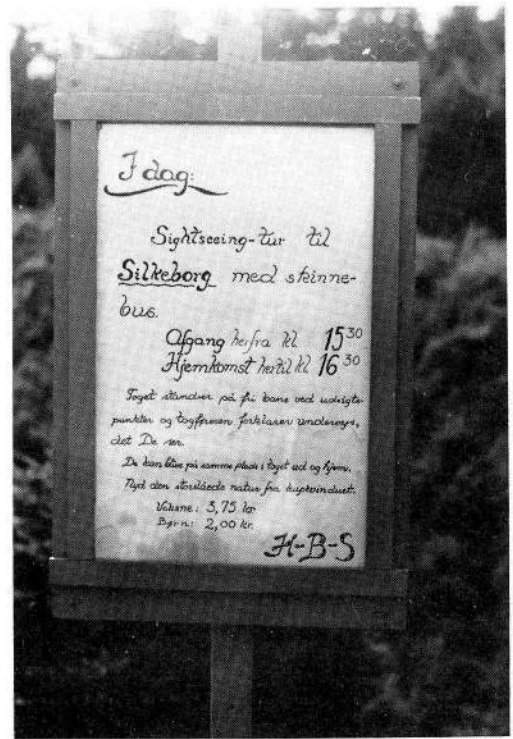 I dag:
Sightseeing-tur til
Silkeborg med skinne-
bus.
Afgang herfra kl. 15³⁰
Hjemkomst hertil kl. 16³⁰
Toget standser på fri bane ved udsigts-
punkter og togføreren forklarer undervejs,
det De ser.
De kan blive på samme plads i toget ud og hjem.
Nyd den storslåede natur fra kupévinduet.
Voksne: 3,75 kr
Børn: 2,00 kr.
H-B-S